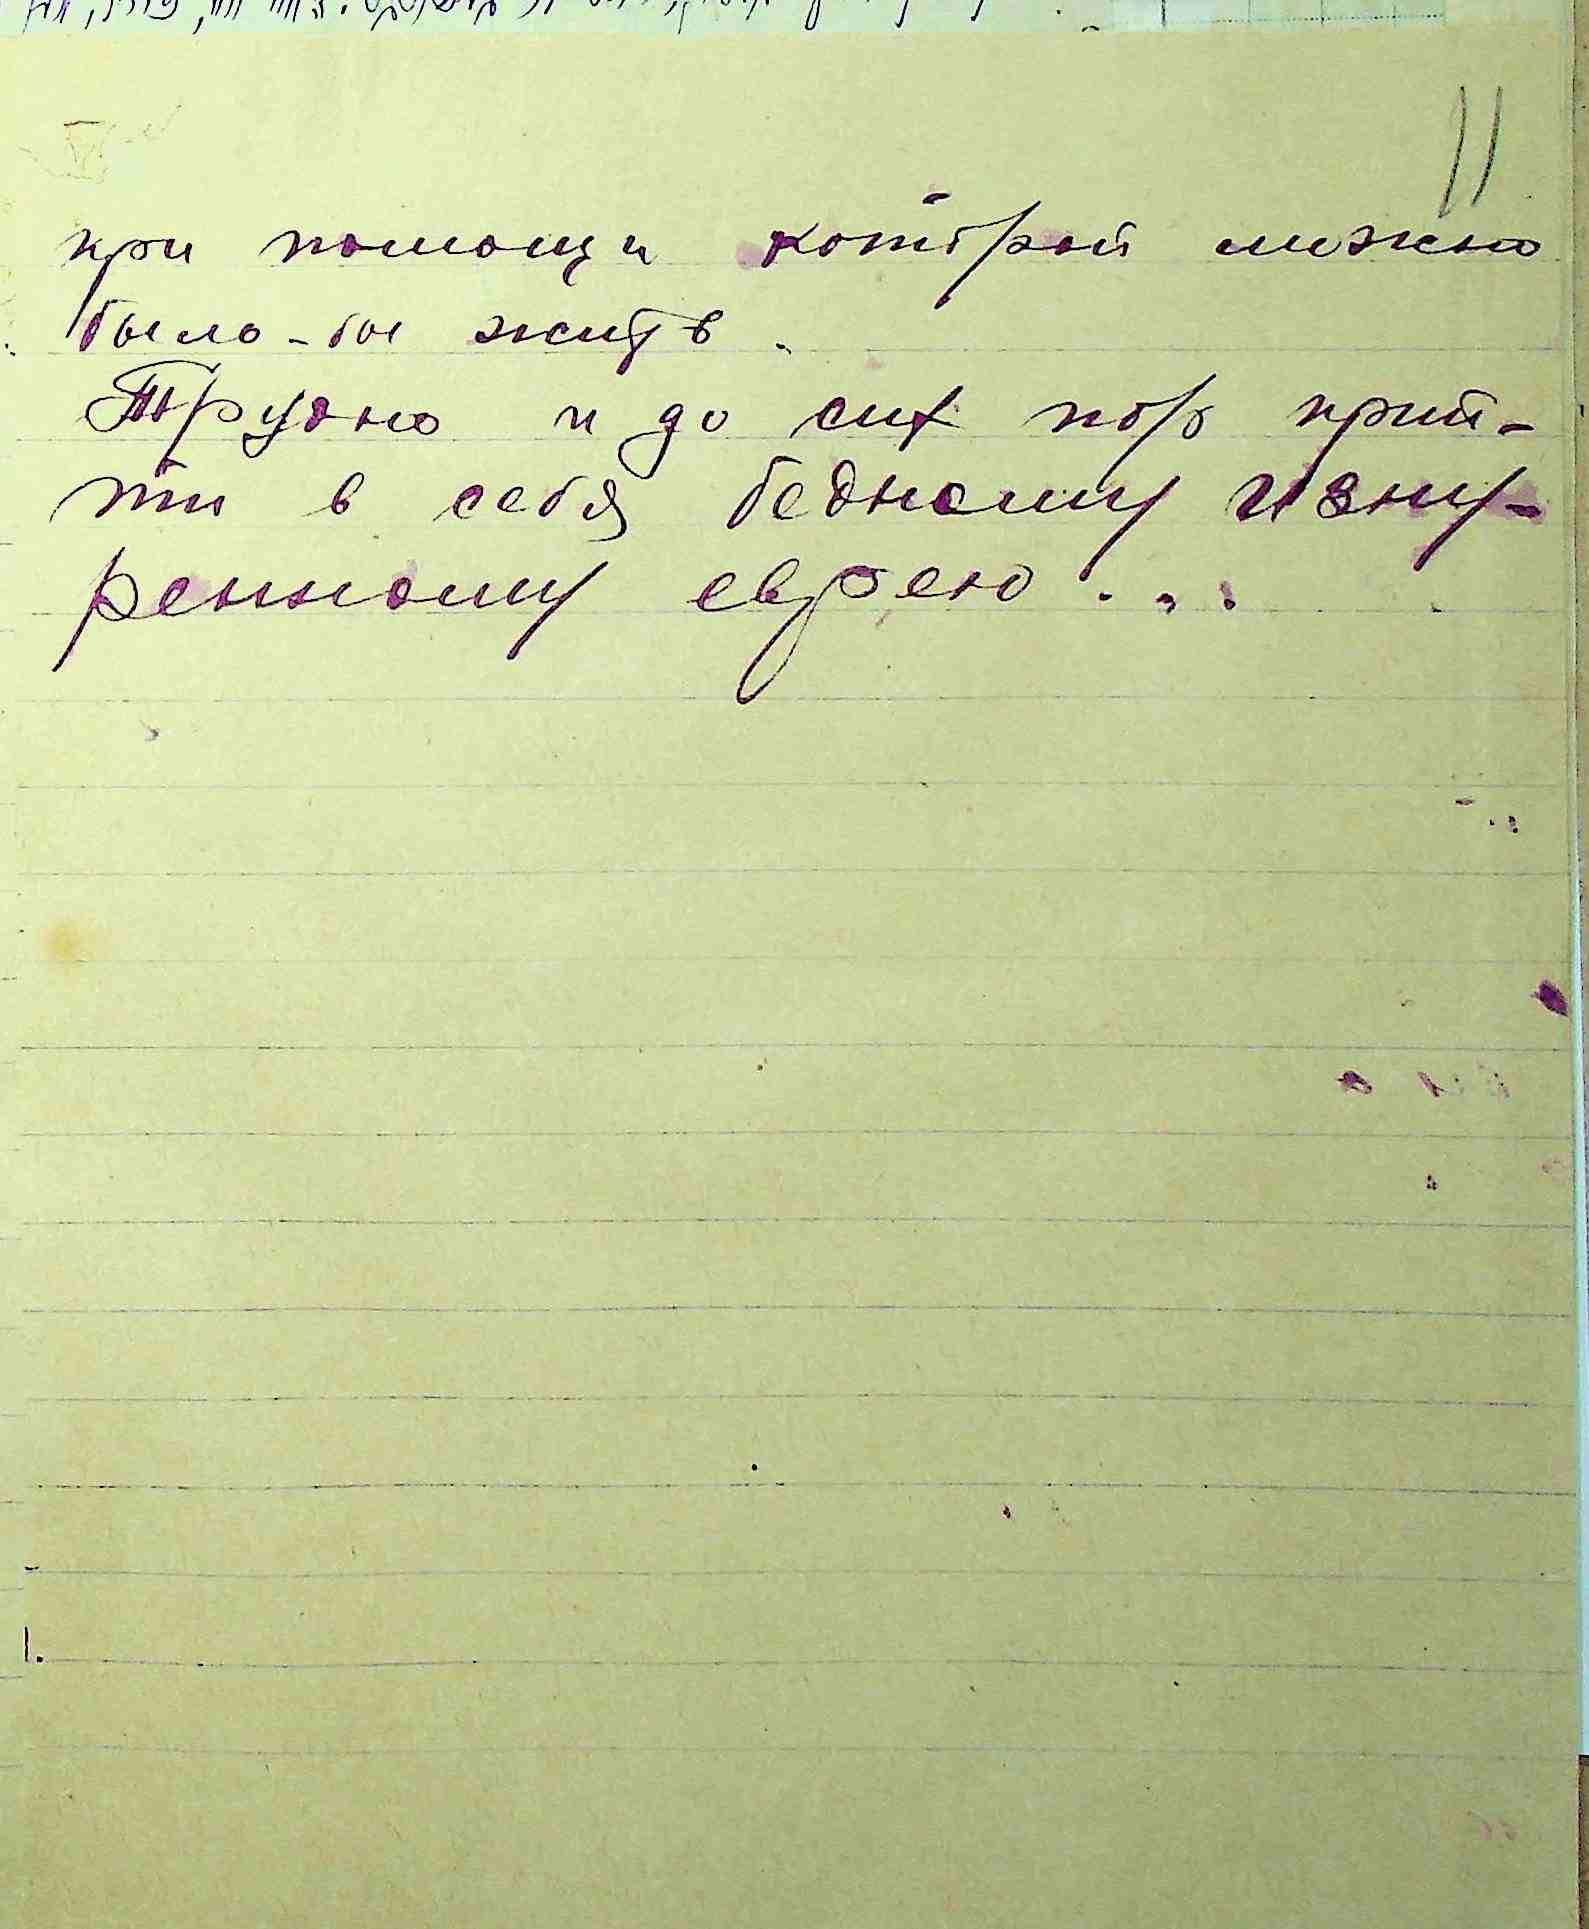 11
при помощи которой можно
было-бы жить.
Трудно и до сих пор прий-
ти в себя бедному изну-
ренному еврею...